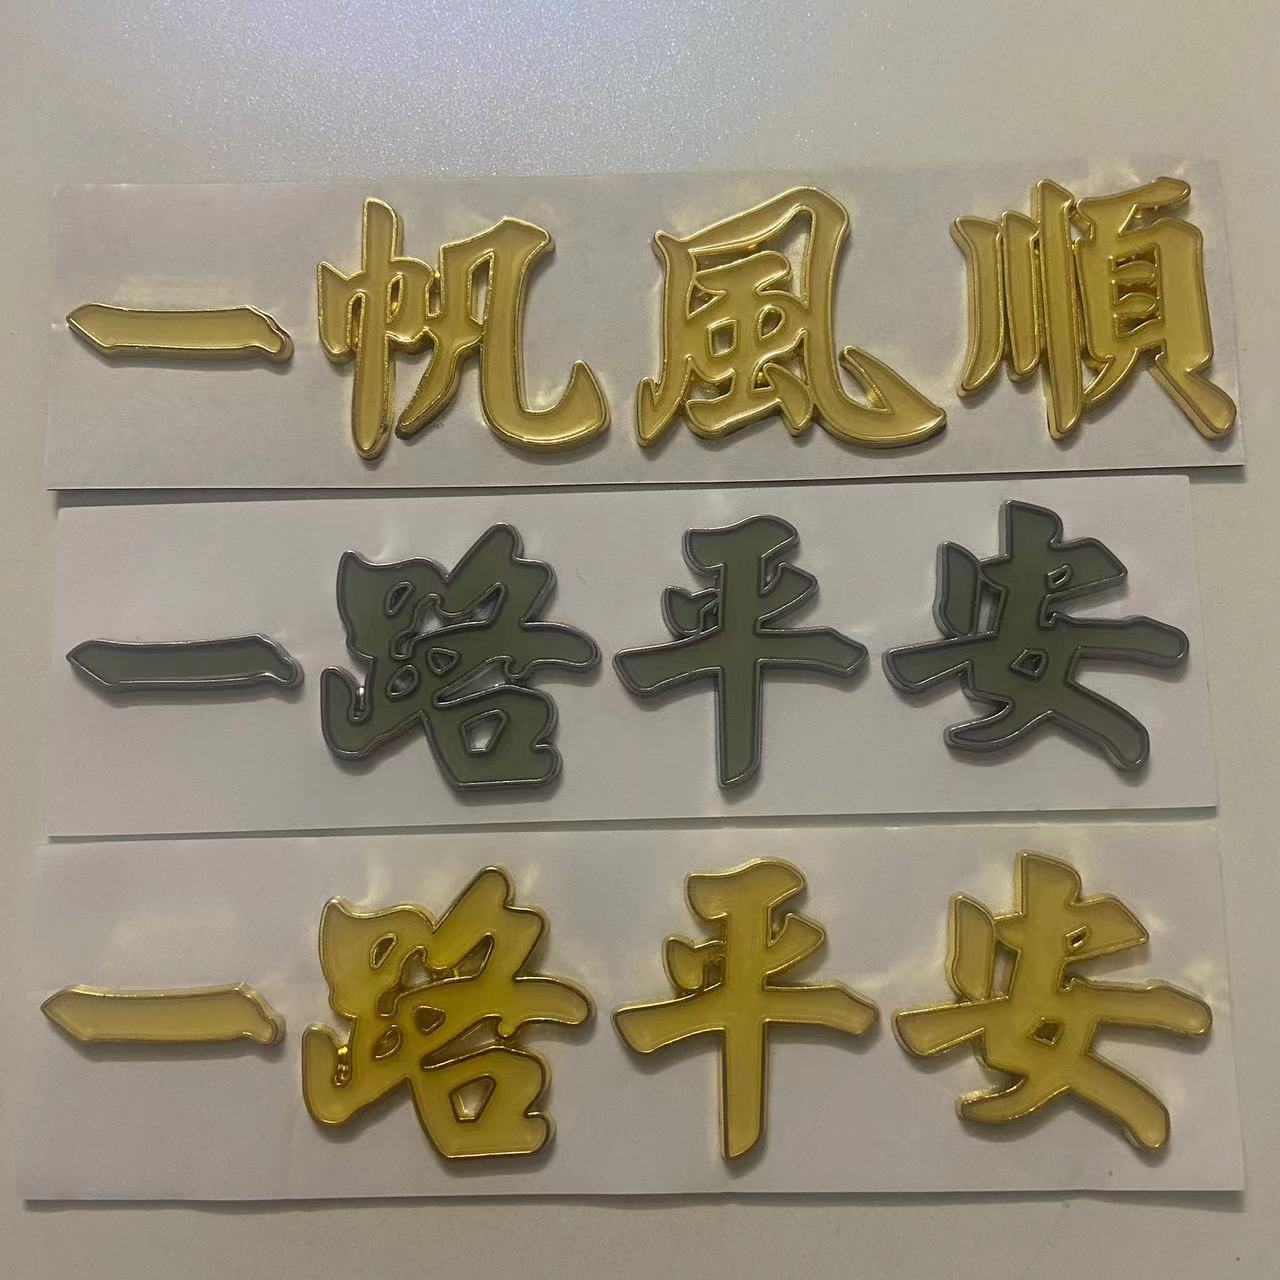 一帆風順
一路平安
一路平安